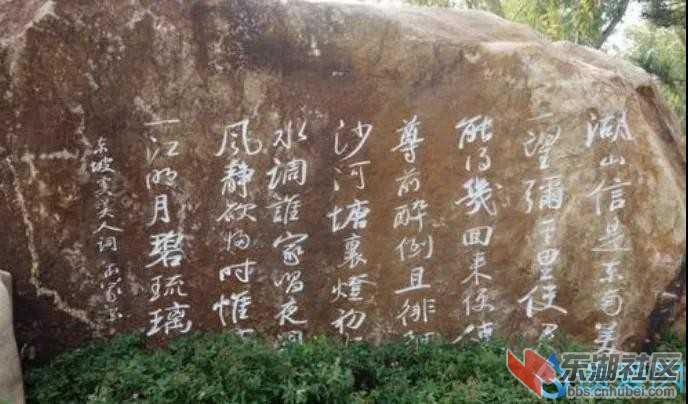 湖山信是东南美
一望彌千里使君
能得幾回来便使
尊前醉倒且徘徊
沙河塘裏燈初
水調誰家唱夜闌
風静欲归时惟
一江明月碧琉璃
东坡虞美人词
东湖社区
bbs.cnhubei.com